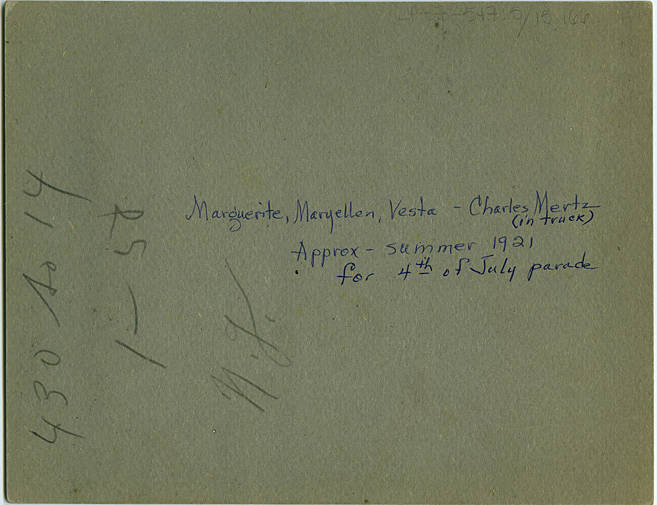 Marguerite, Maryellen, Vesta - Charles Mertz
(in truck)
Approx - summer 1921
for 4th of July parade
430 So 14
1 — 5d
N.F.